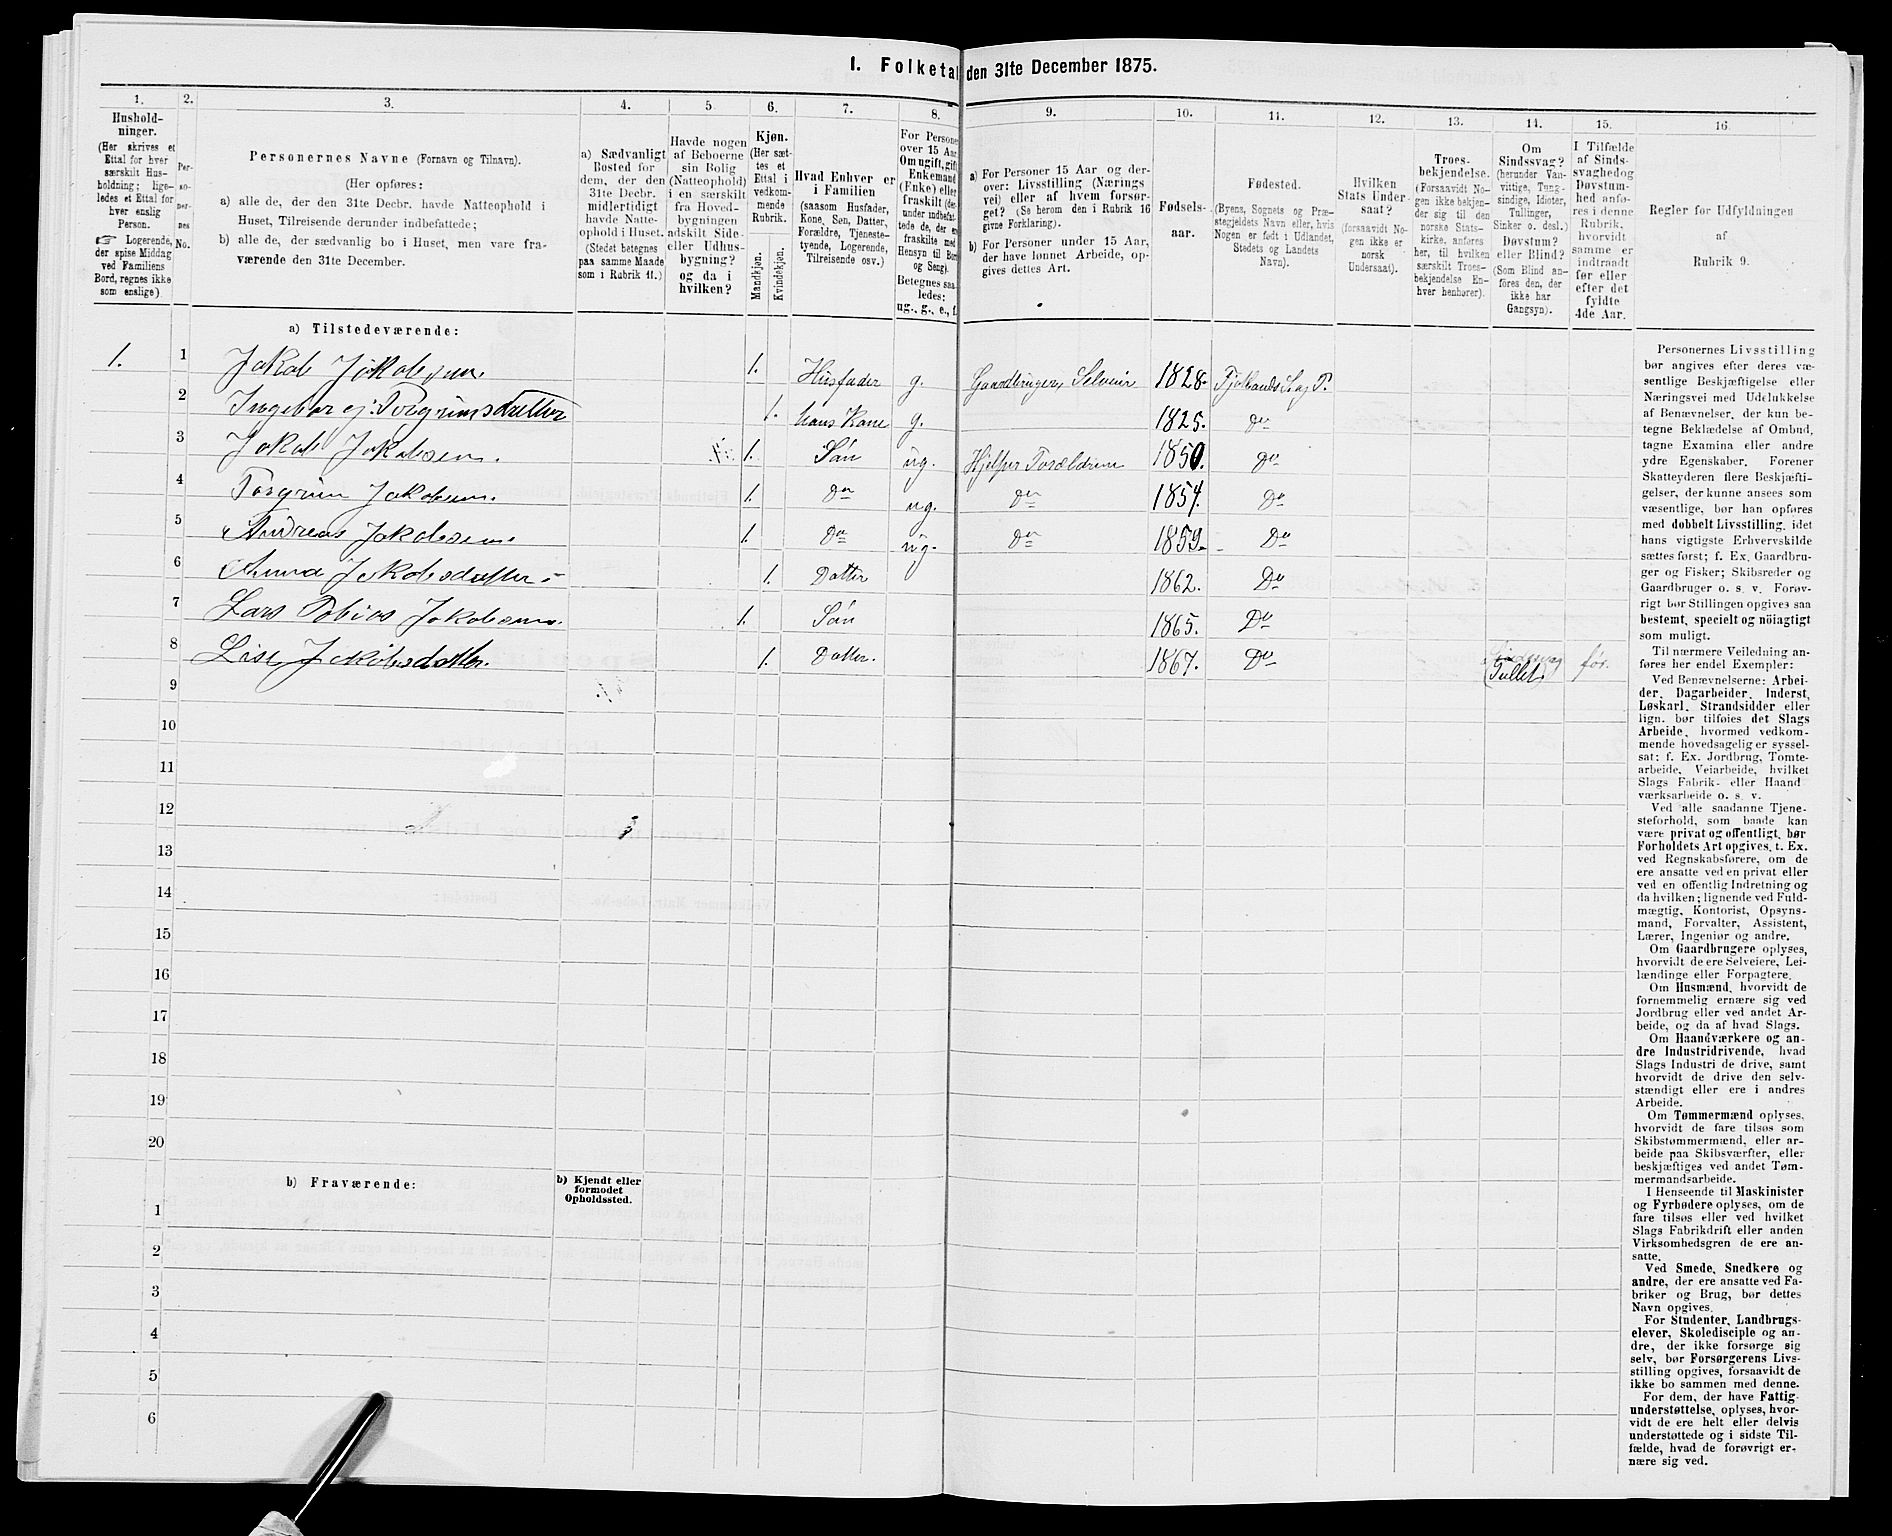 1. Folketal den 31te December 1875.
1. 2. 3. 4. 5. 6. 7. 8. 9. 10. 11. 12. 13. 14. 15. 16.
Hushold-
ninger.
(Her skrives et
Ettal for hver
særskilt Hus-
holdning; lige-
ledes et Ettal for
hver enslig
Person.
☞ Logerende,
der spise Middag
ved Familiens
Bord, regnes ikke
som enslige).
Per-
so-
ner-
nes
No.
Personernes Navne (Fornavn og Tilnavn).
(Her opføres:
a) alle de, der den 31te Decbr. havde Natteophold i
Huset, Tilreisende derunder indbefattede;
b) alle de, der sædvanlig bo i Huset, men vare fra-
værende den 31te December.
a) Sædvanligt
Bosted for
dem, der den
31te Decbr.
midlertidigt
havde Natte-
ophold i Huset.
(Stedet betegnes
paa samme Maade
som i Rubrik 11.)
Havde nogen
af Beboerne
sin Bolig
(Natteophold)
i en særskilt
fra Hoved-
bygningen
adskilt Side-
eller Udhus-
bygning?
og da i
hvilken?
Kjøn.
(Her sæt-
tes et
Ettal i
vedkom-
mende
Rubrik.
Mandkjøn.
Kvindekjøn.
Hvad Enhver er
i Familien
(saasom Husfader,
Kone, Søn, Datter,
Forældre, Tjeneste-
tyende, Logerende,
Tilreisende osv.)
For Personer
over 15 Aar:
Om ugift, gift,
Enkemand
(Enke) eller
fraskilt (der-
under indbefat-
tede de, der ere
fraskilte med
Hensyn til Bord
og Seng).
Betegnes saa-
ledes:
ug., g., e., f.
a) For Personer 15 Aar og der-
over: Livsstilling (Nærings
vei) eller af hvem forsør-
get? (Se herom den i Rubrik 16
givne Forklaring).
b) For Personer under 15 Aar,
der have lønnet Arbeide, op-
gives dettes Art.
Fødsels-
aar.
Fødested.
(Byens, Sognets og Præ-
stegjeldets Navn eller, hvis
Nogen er født i Udlandet,
Stedets og Landets
Navn).
Hvilken
Stats Under-
saat?
(forsaavidt No-
gen ikke er
norsk
Undersaat).
Troes-
bekjendelse.
(Forsaavidt No-
gen ikke bekjen-
der sig til den
norske Stats-
kirke, anføres
her, til hvilken
særskilt Troes-
bekjendelse En-
hver henhører).
Om
Sindssvag?
(herunder Van-
vittige, Tung-
sindige, Idioter,
Tullinger,
Sinker o. desl.)
Døvstum?
eller Blind?
(Som Blind an-
føres den, der
ikke har
Gangsyn).
I Tilfælde
af Sinds-
svaghed og
Døvstum-
hed anfø-
res i denne
Rubrik,
hvorvidt
samme er
indtraadt
før eller
efter det
fyldte
4de Aar.
Regler for Udfyldningen
af
Rubrik 9.
a) Tilstedeværende:
1. 1 Jakob Jakobsen 1. Husfader g. Gaardbruger, Selveier 1828. Fjotlands S. og P.
2 Ingebor ej: Torgrimsdatter 1. hans Kone g. 1825. do
3 Jakob Jakobsen. 1. Søn ug. Hjelper Forældrene 1850. do
4 Torgrim Jakobsen. 1. Do ug. do 1854. do
5 Andreas Jakobsen. 1. Do ug. do 1859. Do
6 Anna Jakobsdatter 1. Datter 1862. Do
7 Lars Tobias Jakobsen. 1. Søn 1865. Do
8 Lise Jakobsdatter. 1. Datter. 1867. Do Sindssvag (Tullet) før.
9
10
11
12
13
14
15
16
17
18
19
20
b) Fraværende:
b) Kjendt eller
formodet
Opholdssted.
1
2
3
4
5
6
Personernes Livsstilling
bør angives efter deres væ-
sentlige Beskjæftigelse eller
Næringsvei med Udelukkelse
af Benævnelser, der kun be-
tegne Beklædelse af Ombud,
tagne Examina eller andre
ydre Egenskaber. Forener
Skatteyderen flere Beskjæfti-
gelser, der kunne ansees som
væsentlige, bør han opføres
med dobbelt Livsstilling, idet
hans vigtigste Erhvervskilde
sættes først; f. Ex. Gaardbru-
ger og Fisker; Skibsreder og
Gaardbruger o. s. v. Forøv-
rigt bør Stillingen opgives saa
bestemt, specielt og nöiagtigt
som muligt.
Til nærmere Veiledning an-
føres her endel Exempler:
Ved Benævnelserne: Arbei-
der, Dagarbeider, Inderst,
Løskarl, Strandsidder eller
lign. bør tilføies det Slags
Arbeide, hvormed vedkom-
mende hovedsagelig er syssel-
sat; f. Ex. Jordbrug, Tomte-
arbeide, Veiarbeide, hvilket
Slags Fabrik- eller Haand
værksarbeide o. s. v.
Ved alle saadanne Tjene-
steforhold, som baade kan
være privat og offentligt, bør
Forholdets Art opgives, t. Ex.
ved Regnskabsførere, om de
ere ansatte ved en privat eller
ved en offentlig Indretning og
da hvilken; lignende ved Fuld-
mægtig, Kontorist, Opsyns-
mand, Forvalter, Assistent,
Lærer, Ingeniør og andre.
Om Gaardbrugere oplyses,
hvorvidt de ere Selveiere, Lei-
lændinge eller Forpagtere.
Om Husmænd, hvorvidt de
fornemmelig ernære sig ved
Jordbrug eller ved andet Ar-
beide, og da af hvad Slags.
Om Haandværkere og an-
dre Industridrivende, hvad
Slags Industri de drive, samt
hvorvidt de drive den selv-
stændigt eller ere i andres
Arbeide.
Om Tømmermænd oplyses,
hvorvidt de fare tilsøs som
Skibstømmermænd, eller ar-
beide paa Skibsværfter, eller
beskjæftiges ved andet Tøm-
mermandsarbeide.
I Henseende til Maskinister
og Fyrbødere oplyses, om de
fare tilsøs eller ved hvilket
Slags Fabrikdrift eller anden
Virksomhedsgren de ere an-
satte.
Ved Smede, Snedkere og
andre, der ere ansatte ved Fa-
briker og Brug, bør dettes
Navn opgives.
For Studenter, Landbrugs-
elever, Skoledisciple og an-
dre, der ikke forsørge sig
selv, bør Forsørgerens Livs-
stilling opgives, forsaavidt de
ikke bo sammen med denne.
For dem, der have Fattig-
understøttelse, oplyses, hvor-
vidt de ere helt eller delvis
understøttede og i sidste Til-
fælde, hvad de forøvrigt er-
nære sig ved.